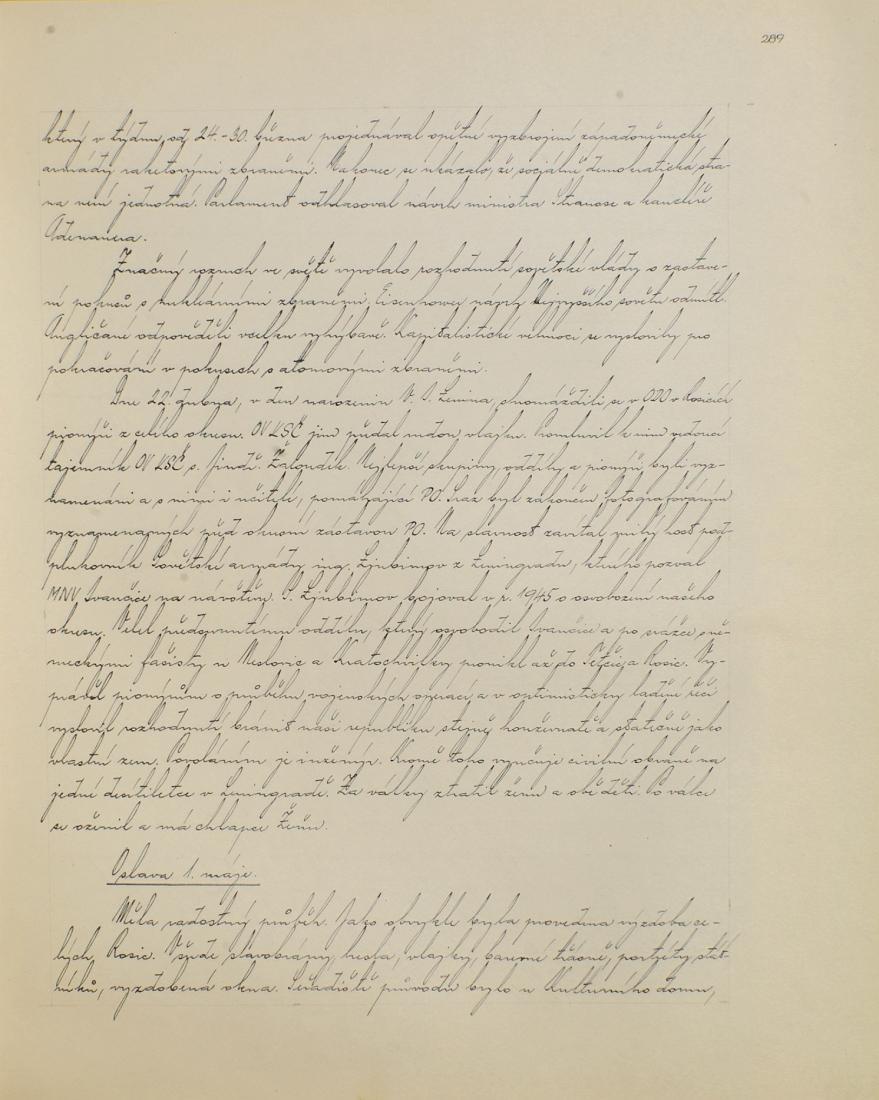 289
který v týdnu od 24.-30. března projednával opětné vyzbrojení západoněmecké
armády raketovými zbraněmi. Nakonec se ukázalo, že sociálně demokratická stra-
na není jednotná. Parlament odhlasoval návrh ministra Strausse a kancléře
Adenauera.
Značný rozruch ve světě vyvolalo rozhodnutí sovětské vlády o zastave-
ní pokusů s nukleárními zbraněmi. Eisenhower návrh Nejvyššího sovětu odmítl.
Angličané odpověděli vcelku vyhýbavě. Kapitalistické velmoci se vyslovily pro
pokračování v pokusech s atomovými zbraněmi.
Dne 22. dubna, v den narozenin V. I. Lenina, shromáždili se v ODO v Rosicích
pionýři z celého okresu. OV KSČ jim předal vlajku. Promluvil k nim vedoucí
tajemník OV KSČ s. Jindř. Žalondek. Nejlepší skupiny, oddíly a pionýři byli vyz-
namenáni a s nimi i učitelé, pomáhající PO. Sraz byl zakončen fotografováním
vyznamenaných před okresní zástavou PO. Na slavnost zavítal milý host pod-
plukovník Sovětské armády ing. Ljubimov z Leningradu, kterého pozval
MNV Ivančice na návštěvu. S. Ljubimov bojoval v r. 1945 o osvobození našeho
okresu. Velel předsunutému oddílu, který osvobodil Ivančice a po srážce s ně-
meckými fašisty u Neslovic a Kratochvilky pronikl až do Tetčic a Rosic. Vy-
právěl pionýrům o průběhu vojenských operací a v optimisticky laděné řeči
vyslovil rozhodnutí bránit naši republiku stejně houževnatě a statečně jako
vlastní zem. Povoláním je inženýr. Kromě toho vyučuje civilní obraně na
jedné desítiletce v Leningradě. Za války ztratil ženu a obě děti. Po válce
se oženil a má chlapce Ženu.
Oslava 1. máje.
Měla radostný průběh. Jako obvykle byla provedena výzdoba ce-
lých Rosic. Všude slavobrány, hesla, vlajky, barevné třásně, portréty stát-
níků, vyzdobená okna. Seřadiště průvodu bylo u Kulturního domu,